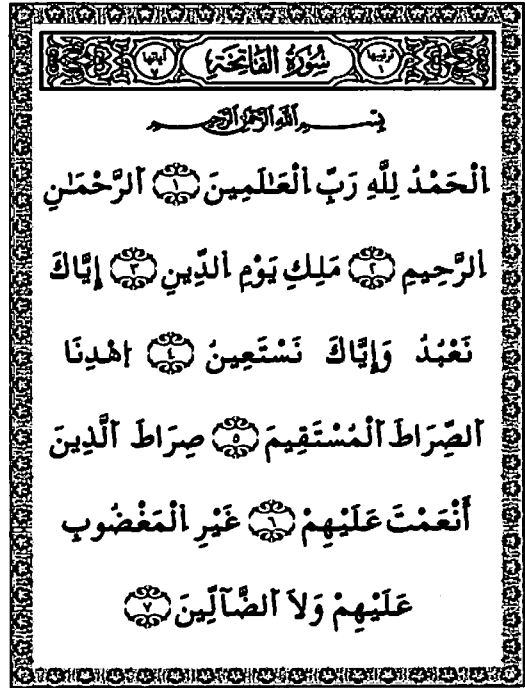 ترتيبها ١ سُورَةُ الفَاتِحَةِ آياتها ٧
بِسْمِ اللهِ الرَّحْمٰنِ الرَّحِيمِ
اِ۬لْحَمْدُ لِلَّهِ رَبِّ اِ۬لْعَٰلَمِينَ ١ اَ۬لرَّحْمَٰنِ
اِ۬لرَّحِيمِ ٢ مَلِكِ يَوْمِ اِ۬لدِّينِ ٣ إِيَّاكَ
نَعْبُدُ وَإِيَّاكَ نَسْتَعِينُ ٤ اِهْدِنَا
اَ۬لصِّرَاطَ اَ۬لْمُسْتَقِيمَ ٥ صِرَاطَ اَ۬لَّذِينَ
أَنْعَمْتَ عَلَيْهِمْ ٦ غَيْرِ اِ۬لْمَغْضُوبِ
عَلَيْهِمْ وَلاَ اَ۬لضَّآلِّينَ ٧